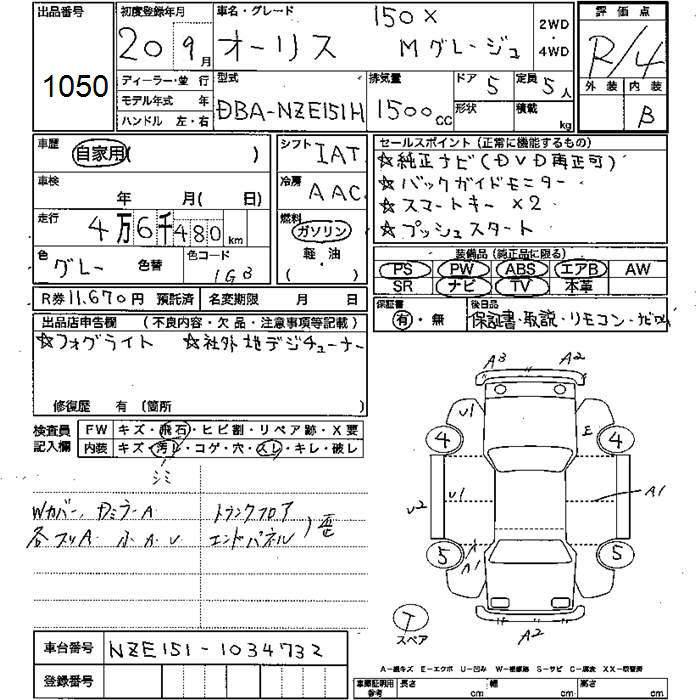 出品番号 初度登録年月 車名・グレード 評価点
1050 20 9月 オーリス 150X Mグレージュ 2WD・4WD R/4
ディーラー・並行 型式 排気量 ドア 定員 外装 内装
モデル年式 年 DBA-NZE151H 1500cc 5 5人 B
ハンドル 左・右 形状 積載 kg
車歴 自家用( ) シフト IAT セールスポイント (正常に機能するもの)
☆純正ナビ(DVD再生可)
車検 年 月( 日) 冷房 AAC ☆バックガイドモニター
☆スマートキー ×2
走行 4万6千480km 燃料 ガソリン ☆プッシュスタート
色 グレー 色替 色コード 1G3 軽・油 ( )
装備品(純正品に限る)
PS PW ABS エアB AW
SR ナビ TV 本革
R券 11,670円 預託済 名変期限 月 日
保証書 有・無 後日品 保証書・取説・リモコン・
出品店申告欄 (不良内容・欠品・注意事項等記載)
☆フォグライト ☆社外地デジチューナー
修復歴 有(箇所
検査員記入欄 FW キズ・飛石・ヒビ割・リペア跡・X要
内装 キズ・汚レ・コゲ・穴・スレ・キレ・破レ
シミ
Wカバー、Dミラー A トランクフロア
各スリA 小A・U エンドパネル )歪
A3 A2
U1 E
4 4
U2 U1 A1
A A1
5 5
T
スペア A2
車台番号 NZE151-1034732
登録番号
A−線キズ E−エクボ U−凹ミ W−補修跡 S−サビ C−腐食 XX−取替済
車庫証明用参考 長さ cm 幅 cm 高さ cm